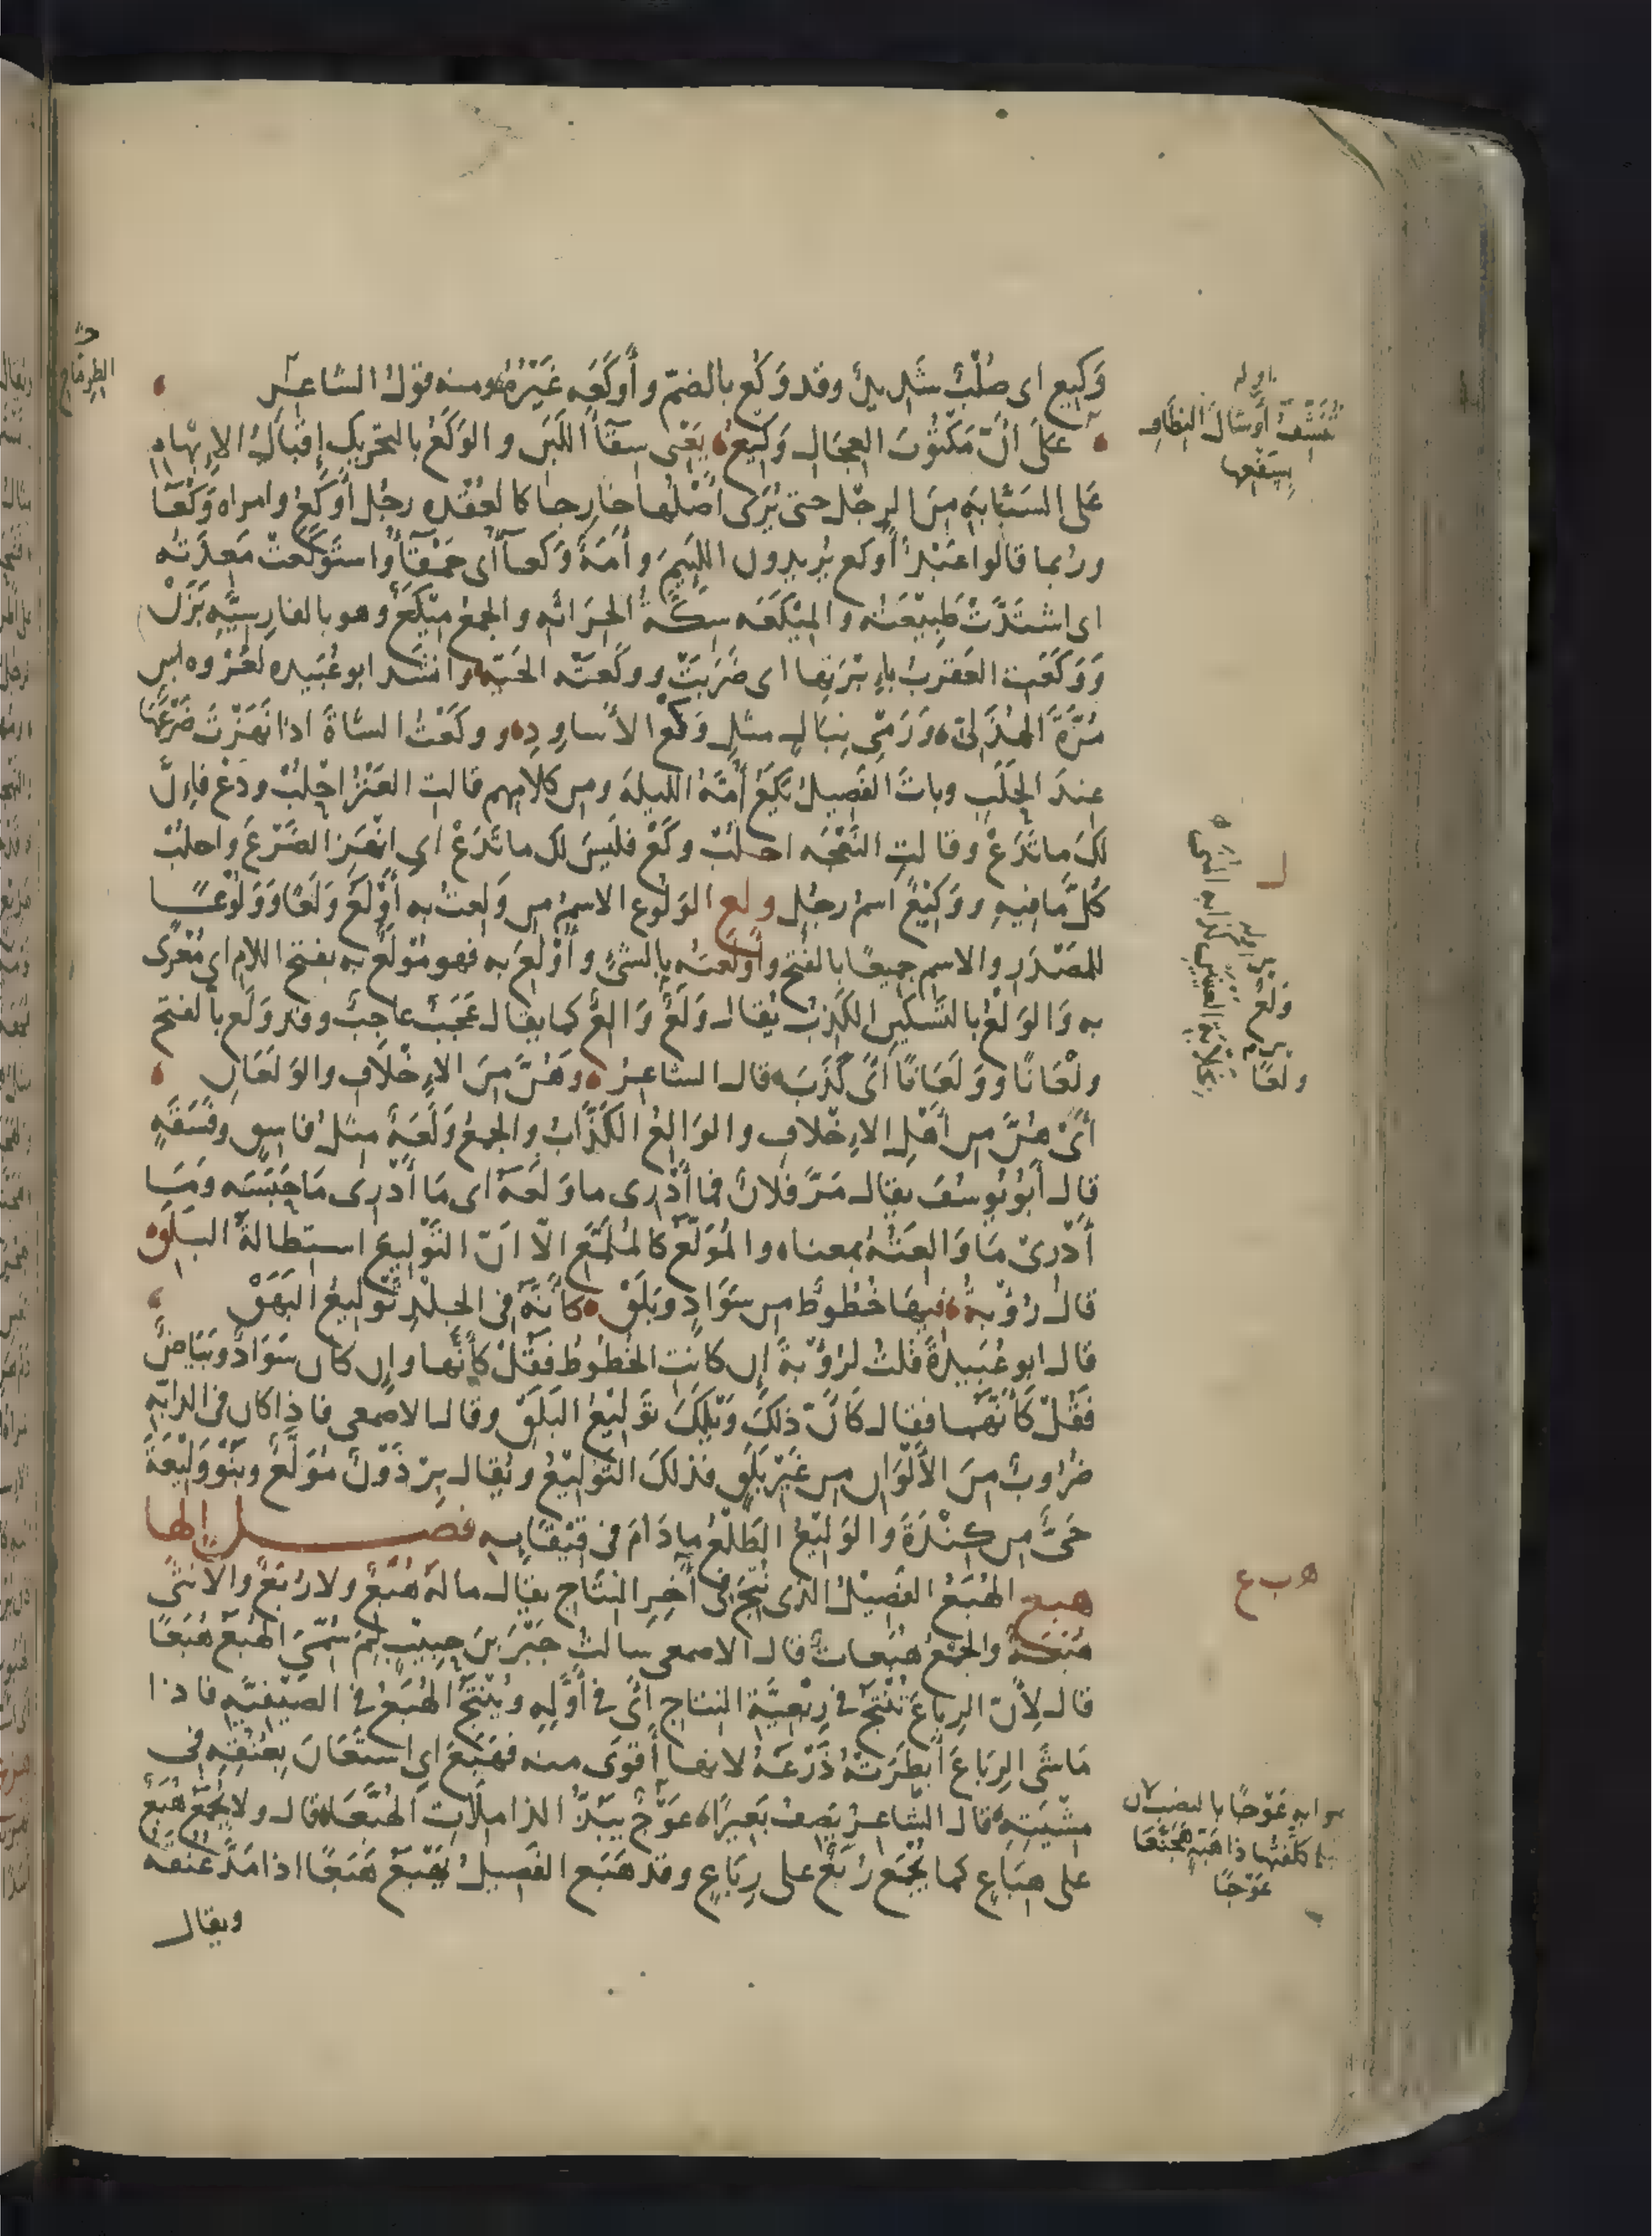 وَكِيع اى صُلْبٌ شَدِيدٌ وقد وَكُع بالضمّ وأَوكَعَه غَيْرُهُ ومنه قولُ الشاعر
الطِرِمَّاح
عَلَى أنّ مَكْتُوبَ العِجَالِ وَكِيعُ يَعْنى سِقَآءَ اللَبَن والوَكَعُ بالتحريك إقْبَالُ الإبْهَامِ
اوله
تُنَشِّفُ أوْشَالَ النِطَافِ
عَلى السَبّابَةِ مِنَ الرِجْل حتى يُرَى أصْلُها خارجا كالعُقْدةِ رجُل أوْكَعُ وامراة وَكْعَا
وربما قالوا عَبْدٌ أوكع يُريدون اللئِيمَ وأَمَةٌ وَكعآءُ أى حَمْقَآءُ واستَوكَعتْ مَعِدَتُه
اى اشتَدَّتْ طَبِيْعَتُه والمِيْكَعَه سِكَّةُ الحِرَاثَه والجمعُ مِيْكَعٌ وهو بالفارسيّه بَزَنْ
وَوَكَعَتِ العَقرَبُ بإبْرَتِها اى ضَرَبَتْ ووكَعَتْه الحَيّه وانشَد ابو عُبَيده لعُرْوه بن
مُرَّةَ الهُذَلِىّ ورَمْىِ نِبَالٍ مثلِ وَكْعِ الأَسَاوِدِ ووكَعْتُ الشاةَ اذا نَهَزْتَ ضَرْعَهَا
عِندَ الحَلَبِ وباتَ الفَصِيلُ يَكَعُ أُمَّهُ الليلةَ ومن كلامهم قالتِ العَنْزُ احْلُبْ ودَعْ فإنّ
لكَ ما تَدَعْ وقالتِ النَعْجَه احلُبْ وكَعْ فلَيسَ لك ما تَدَعْ اى انْهَزِ الضَرْعَ واحلُبْ
كُلَّ مَا فِيهِ ووَكِيْعٌ اسمُ رجُلٍ ولع الوَلُوع الاسمُ من وَلِعتُ به أوْلَعُ وَلَعًا ووَلُوْعًا
للمَصْدَرِ والاسمِ جميعًا بالفَتْحِ وأَوْلَعتُه بالشَئِ وأُوْلِعَ به فهو مُوْلَعٌ به بفتح اللام اى مُغْرًى
به وَالوَلْعُ بالتَسْكينِ الكَذِبُ يُقالُ وَلْعٌ وَالِعٌ كما يقال عَجَبٌ عاجِبٌ وقد وَلَع بالفتح
وَلْعًا
ولْعَانًا ووَلَعَانًا أىْ كَذَبَ قال الشاعرُ وَهُنَّ مِنَ الإخْلَافِ والوَلَعَانِ
أىْ هُنَّ من أهْلِ الإخْلَافِ والوَالِعُ الكَذَّابُ والجمعُ وَلَعَةٌ مثلُ فاسِقٍ وفَسَقَةٍ
قال أَبُو يُوسُفَ يقال مَرَّ فلانٌ فما أَدْرِى ما وَلَعَهُ اى مَا أَدْرِى مَا حَبَسَه ومَا
أَدْرِىْ مَا وَالِعَتُهُ بمعناه والمُوَلَّعُ كالمُلَمَّعِ الّا انّ التَوْلِيعَ استِطالةُ البَلَقِ
قال رُؤبةُ فيها خُطُوطٌ من سَوَادٍ وبَلَقْ كأنّهُ فى الجِلْدِ تَوْلِيعُ البَهَقْ
قال ابو عُبَيدةَ قُلتُ لرُؤبةَ إن كانَتِ الخُطوطُ فقُلْ كأنّها وإن كان سَوَادٌ وبَيَاضٌ
فَقُلْ كَأنّهما فقال كَانّ ذلكَ وَيْلَكَ تَوْلِيْعُ البَلَقْ وقال الاصمعى فاذا كان فى الدابّةِ
ضرُوبٌ مِنَ الأَلْوَان من غَيْرِ بَلَقٍ فذلكَ التَوْلِيْعُ ويُقال بِرْذَوْنٌ مُوَلَّعٌ وبَنُو وَلِيْعَةَ
حَىٌّ من كِنْدَةَ والوَلِيْعُ الطَلْعُ ما دَامَ فى قِيْقَائِه فصل الها
هبع الهُبَعُ الفَصِيْلُ الذى نُتِجَ فى آخِرِ النِتَاجِ يقال ما لهُ هُبَعٌ ولا رُبَعٌ والانثى
ه ب ع
هُبَعَةٌ والجَمْعُ هُبَعات قال الاصمعى سالتُ جَبْرَ بنَ حبيبٍ لِمَ سُمِّىَ الهُبَعُ هُبَعًا
قال لِأنّ الرِبَاعَ تُنْتَجُ فى رِبْعِيَّةِ النتاج أىْ فى أوّلِهِ ويُنْتَجُ الهُبَعُ فى الصَيْفيّهِ فاذا
مَاشَى الرِبَاعَ أبطَرَتْهُ ذَرْعَهُ لانها أقوَى منه فهَبَعَ اى استَعَانَ بِعُنُقِهِ فى
مِشْيَتِه قال الشّاعرُ يَصِفُ بَعِيرًا عَوْجٌ يَبُذُّ الذامِلَاتِ الهُبَّعَا قال ولا يُجمَعُ هُبَعٌ
صوابه عَوْجًا بالنصب لان
كَلّفتها ذا هَبّةٍ هَجَنَّعَا
عَوْجًا
على هِبَاعٍ كما يُجْمَع رُبَعٌ على رِبَاعٍ وقد هَبَع الفَصِيلُ يَهْبَعُ هَبَعًا اذا مَدَّ عُنُقَه
ويقال